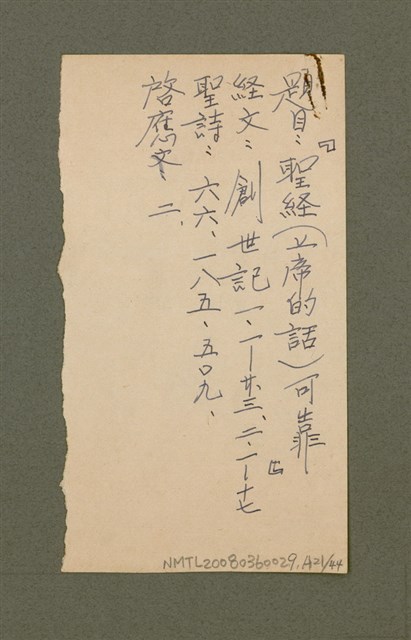 題目：『聖経（上帝的話）可靠』
経文：創世記一、一－廿三、二、一－十七
聖詩：六六、一八五、五〇九、
啓應文、二、
NMTL20080360029.A21/44